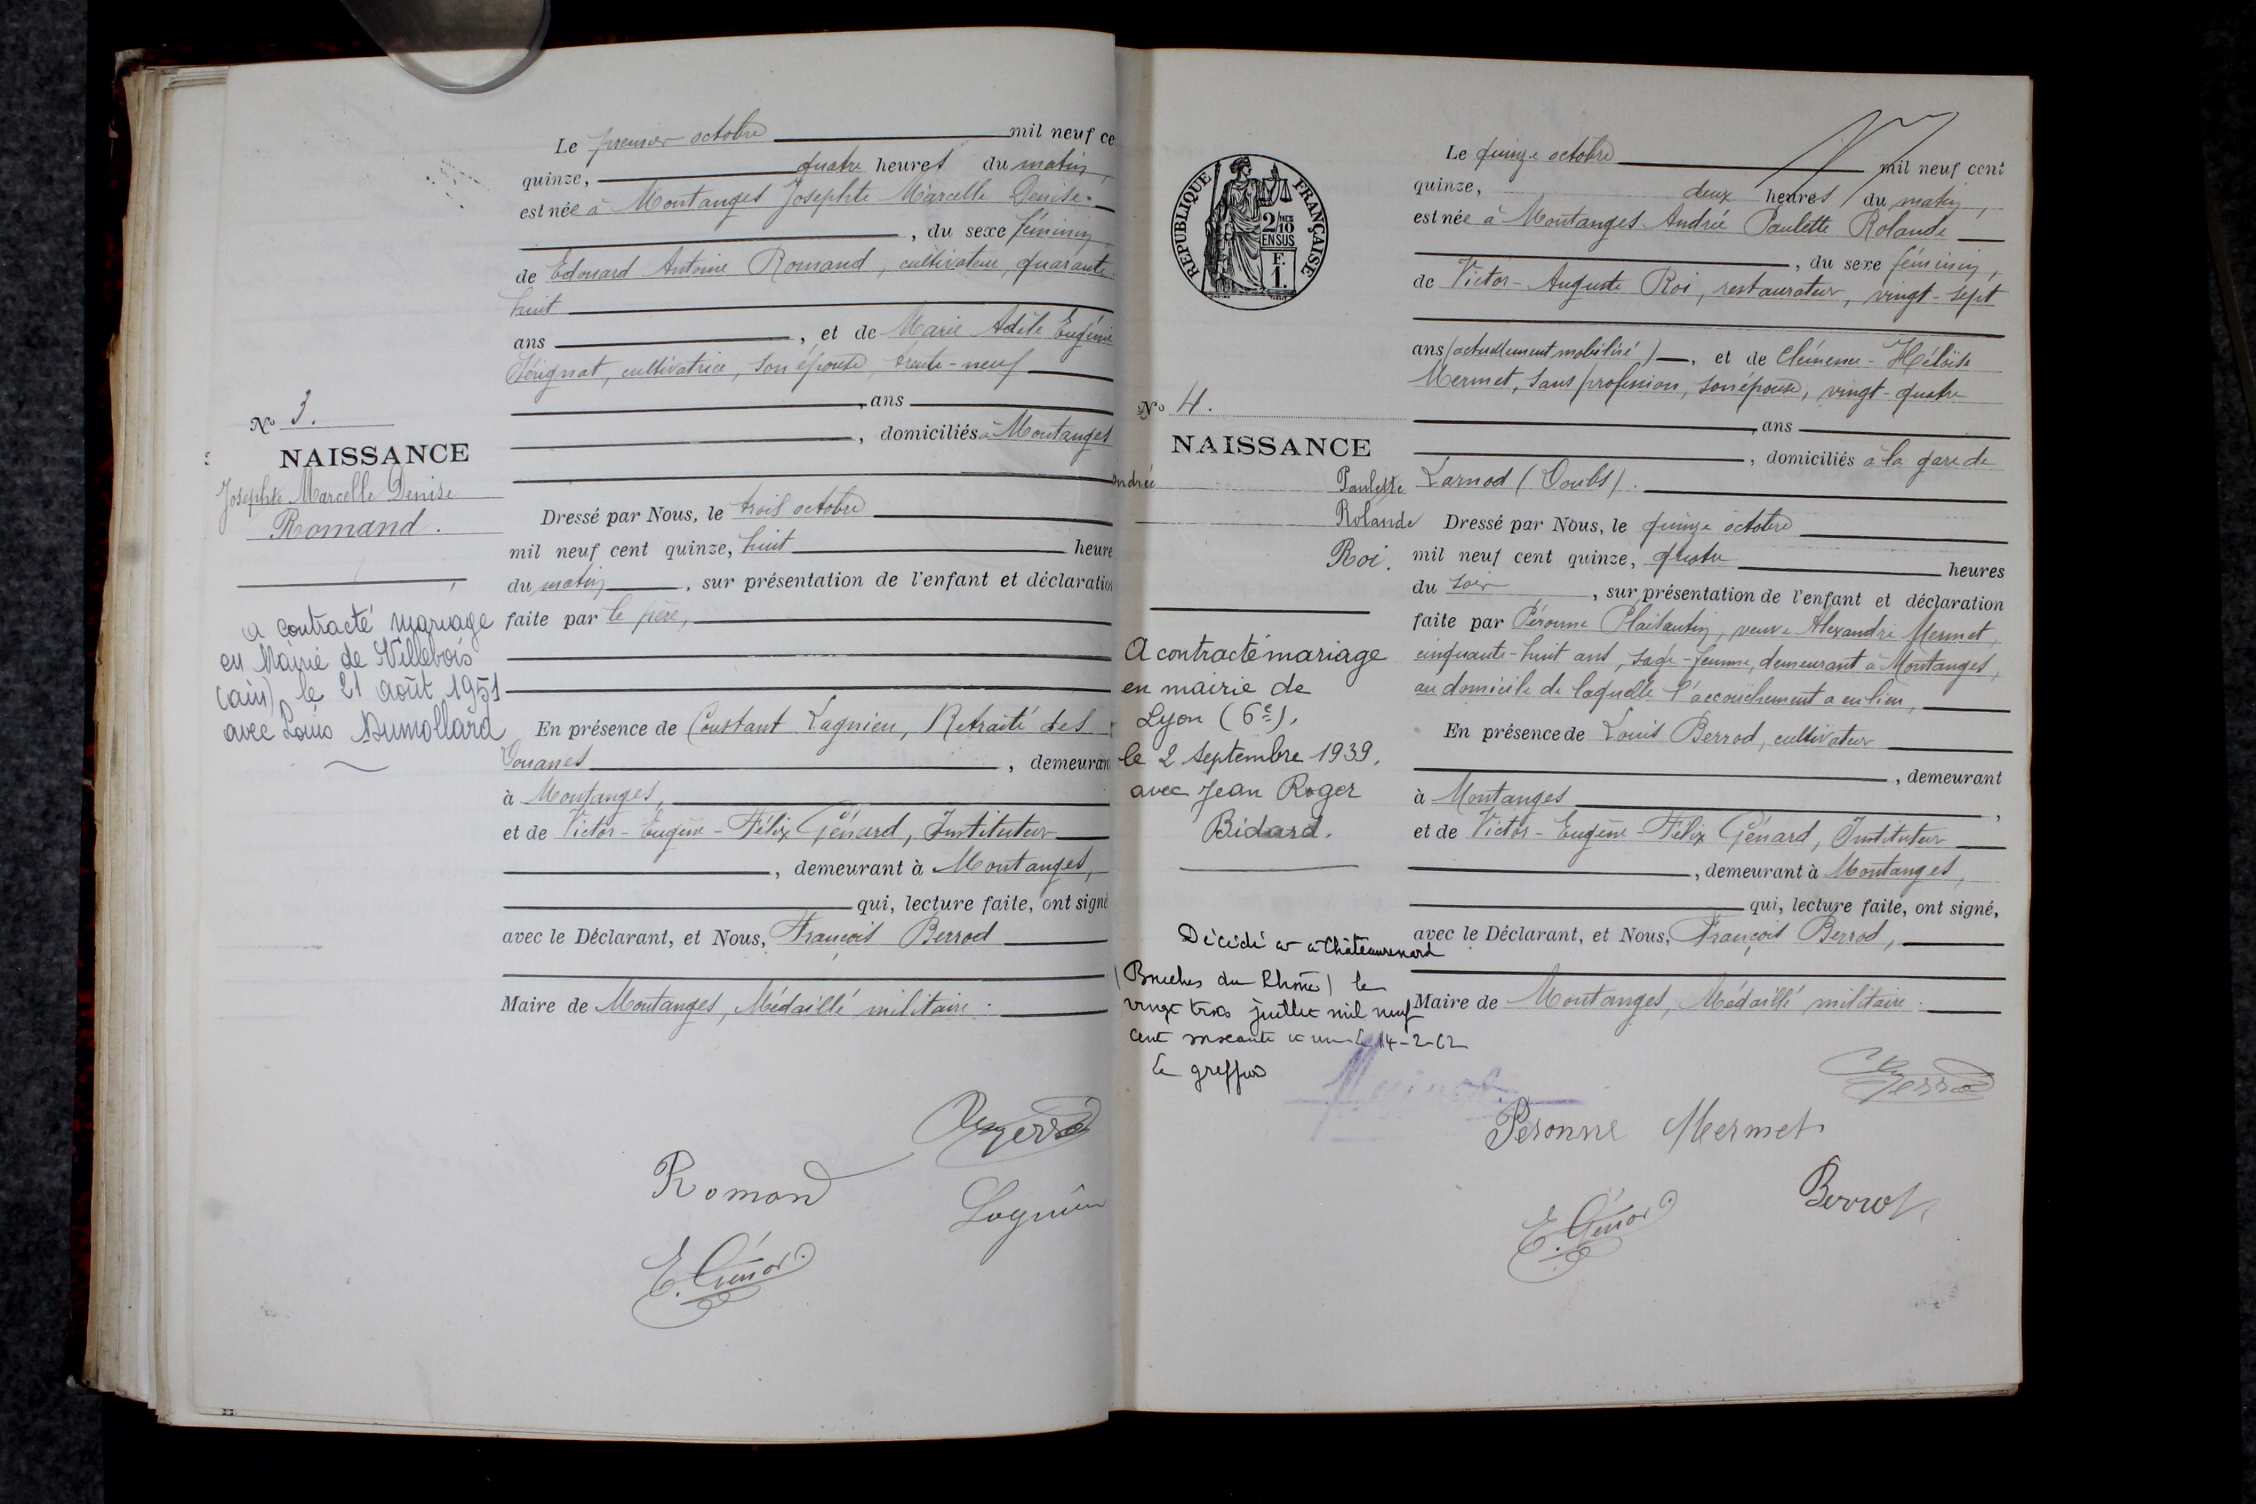 Le premier octobre mil neuf ce
quinze, quatre heures du matin,
est née à Montanges Josephte Marcelle Denise
, du sexe féminin,
de Edouard Antoine Romand, cultivateur, quarante-
huit
ans , et de Marie Adèle Eugénie
cultivatrice, son épouse, trente-neuf
, ans
, domiciliés à Montanges
No 3.
NAISSANCE
Josephte Marcelle Denise
Romand.
Dressé par Nous, le trois octobre
mil neuf cent quinze, huit heure
du matin , sur présentation de l'enfant et déclaration
faite par le père,
a contracté mariage
en Mairie de Villebois
(ain), le 21 août 1951
avec Louis Dumollard
En présence de Constant Lagnieu, Retraité des
Douanes , demeurant
à Montanges,
et de Victor-Eugène-Félix Génard, Instituteur
, demeurant à Montanges,
qui, lecture faite, ont signé
avec le Déclarant, et Nous, François Berrod
Maire de Montanges, Médaillé militaire.
Berrod
Romand
Lagnieu
E. Génard
REPUBLIQUE FRANÇAISE
2/10 MES
EN SUS
F.
1.
Le quinze octobre mil neuf cent
quinze, deux heures du matin,
est née à Montanges Andrée Paulette Rolande
, du sexe féminin,
de Victor-Auguste Roi, restaurateur, vingt-sept
ans (actuellement mobilisé) , et de Clémence-Héloïse
Mermet, sans profession, son épouse, vingt-quatre
, ans
, domiciliés à la gare de
Larnod (Doubs).
No 4.
NAISSANCE
Andrée Paulette
Rolande
Roi.
Dressé par Nous, le quinze octobre
mil neuf cent quinze, quatre heures
du soir , sur présentation de l'enfant et déclaration
faite par Péronne Plaisantin, veuve Alexandre Mermet,
cinquante-huit ans, sage-femme, demeurant à Montanges,
au domicile de laquelle l'accouchement a eu lieu,
A contracté mariage
en mairie de
Lyon (6e),
le 2 septembre 1939,
avec Jean Roger
Bidard.
En présence de Louis Berrod, cultivateur
, demeurant
à Montanges ,
et de Victor-Eugène-Félix Génard, Instituteur
, demeurant à Montanges,
qui, lecture faite, ont signé,
avec le Déclarant, et Nous, François Berrod,
Maire de Montanges, Médaillé militaire.
Décédée à Châteaurenard
(Bouches du Rhône) le
vingt trois juillet mil neuf
cent soixante et un le 14-2-62
Le greffier
Berrod
Péronne Mermet
Berrod
E. Génard